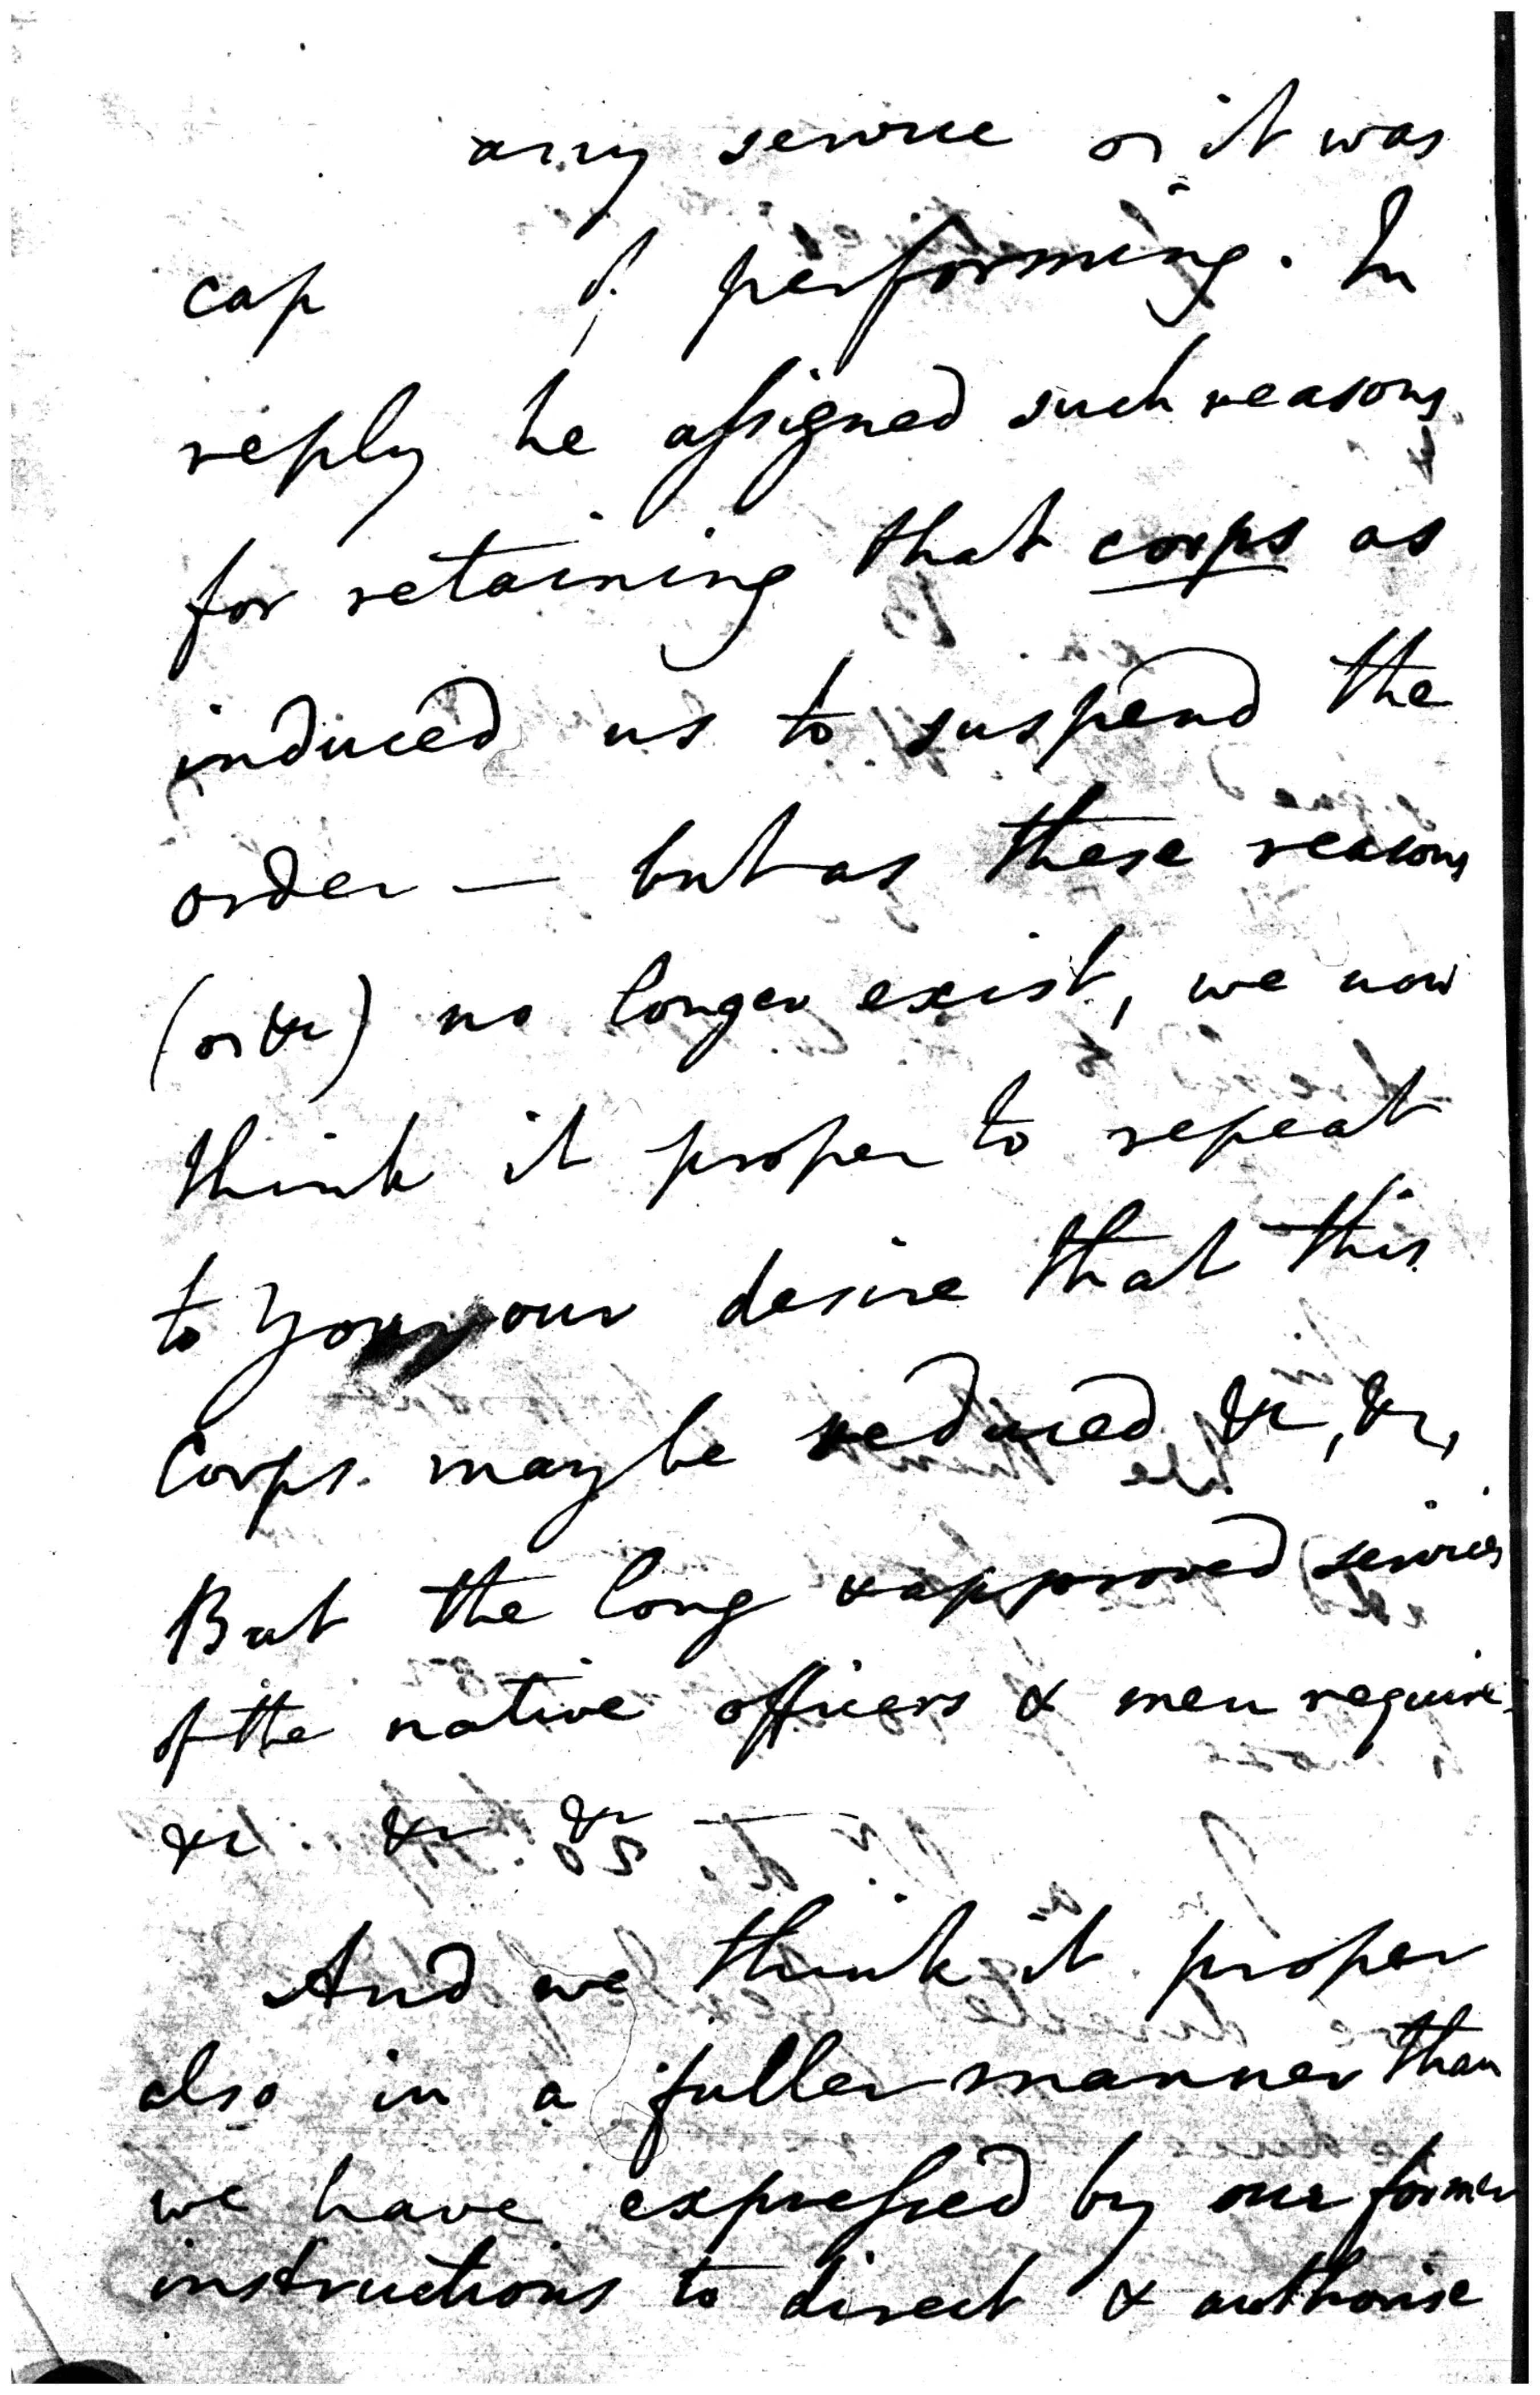 any service or it was
cap of performing. In
reply he assigned such reasons
for retaining that corps as
induced us to suspend the
order — but as these reasons
(or &c) no longer exist, we now
think it proper to repeat
to you our desire that this
Corps. may be reduced &c, &c,
But the long & approved services
of the native officers & men require
&c &c &c —
And we think it proper
also in a fuller manner than
we have expressed by our former
instructions to direct & authorise